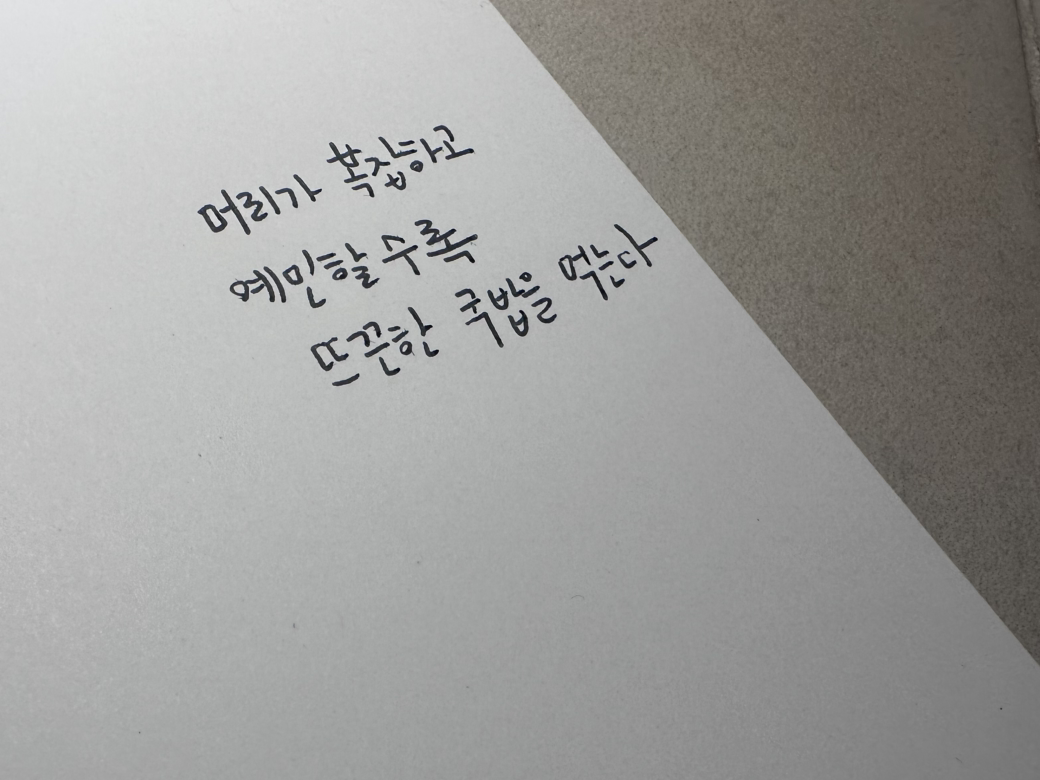 머리가 복잡하고
예민할수록
뜨끈한 국밥을 먹는다